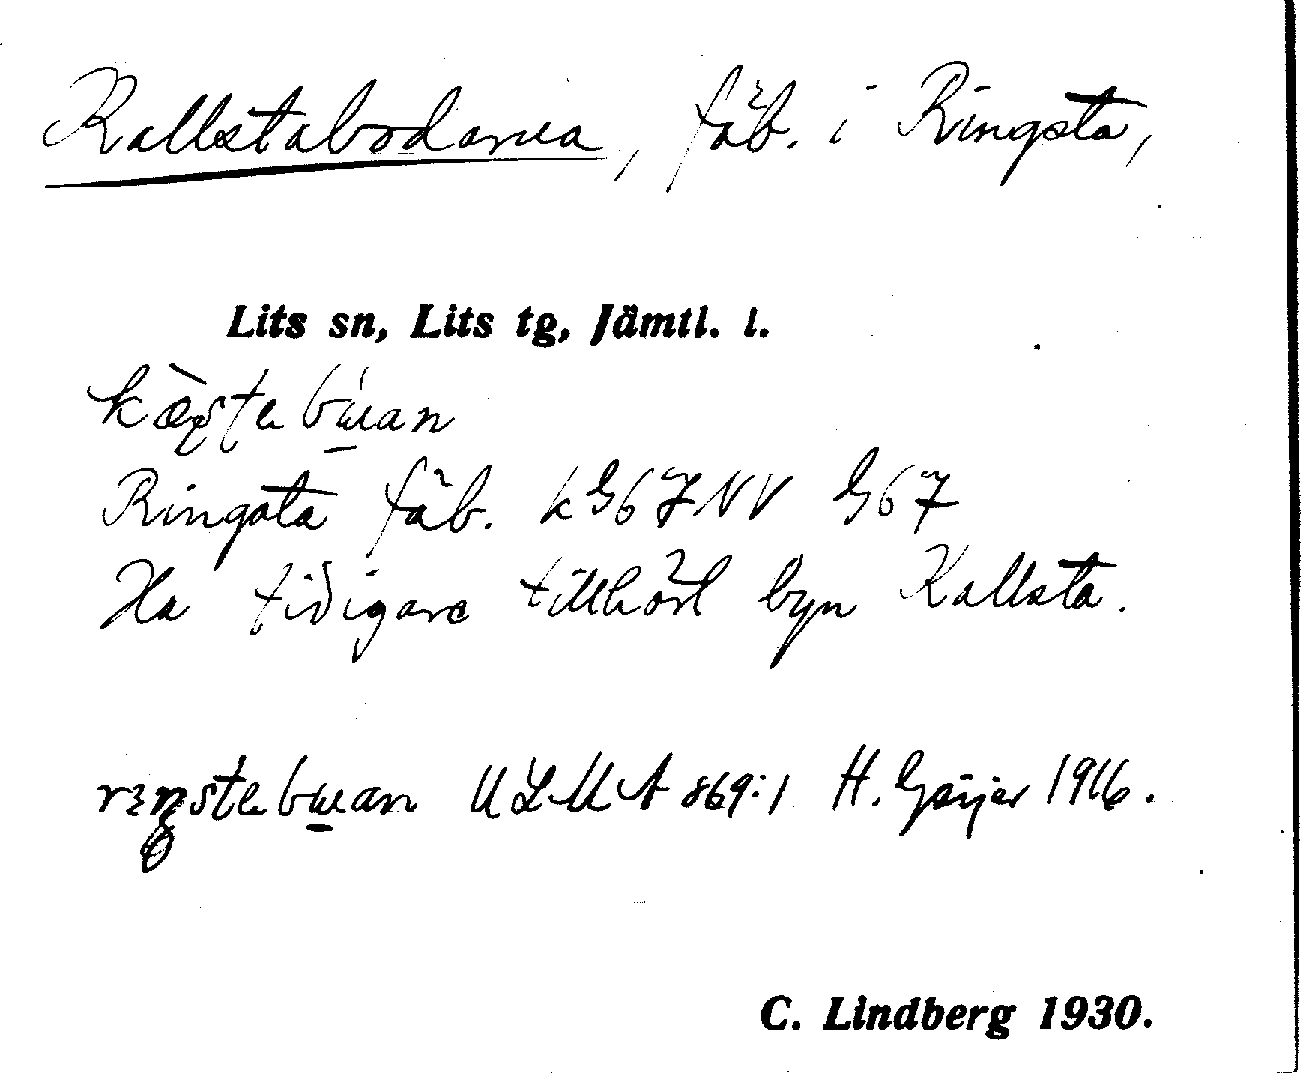 Kallstabodarna, fäb. i Ringsta,
Lits sn, Lits tg, Jämtl. l.
Ringsta fäb. k G67NV G67
Ha tidigare tillhört byn Kallsta.
ULMA 869:1 H. Geijer 1916.
C. Lindberg 1930.